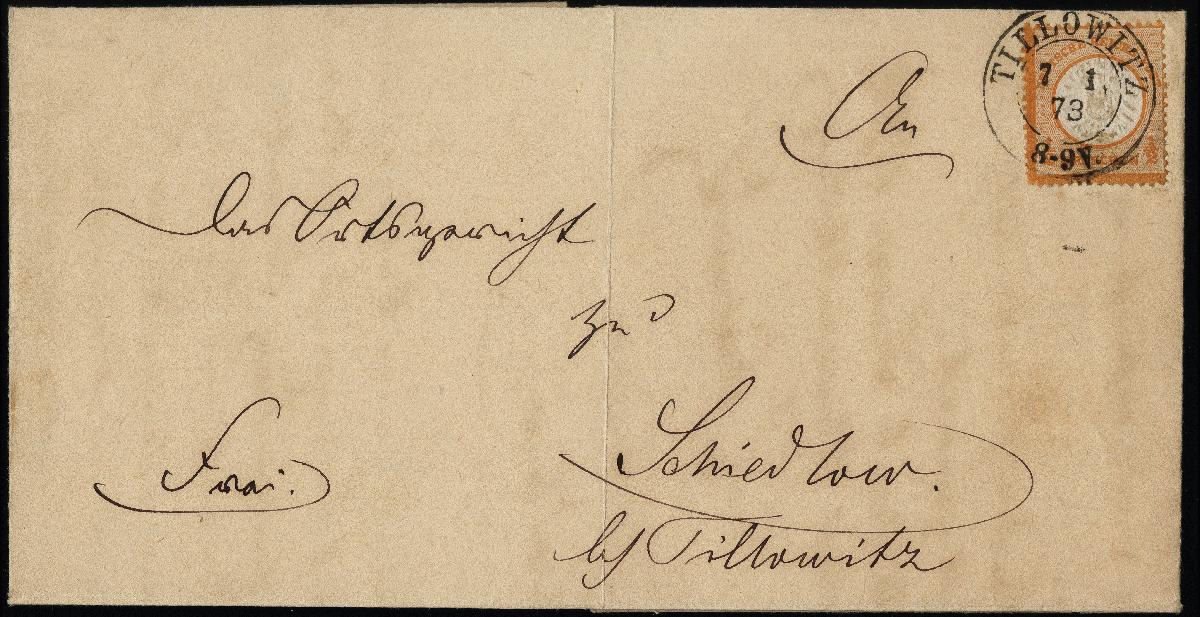 TILLOWITZ
7 1
73
8-9V.
An
das Ortsgericht
zu
Schiedlow.
Frei.
bei Tillowitz